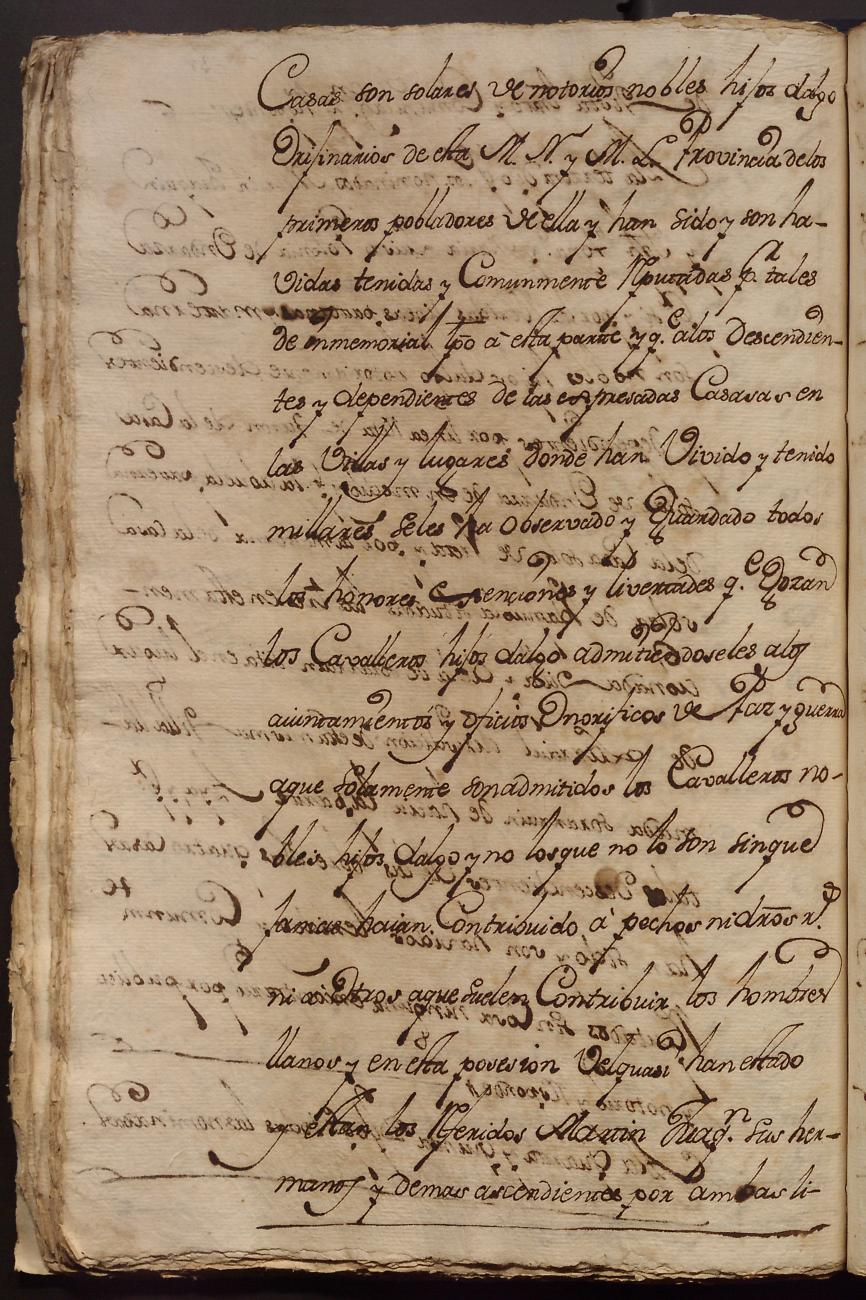 Casas son solares de notorios nobles hijos dalgo
Orijinarios de esta M. N. y M. L. Provincia de los
primeros pobladores de ella y han sido y son ha-
vidas tenidas y Comunmente Reputadas pr. tales
de inmemorial tpo â esta parte y q.e alos Descendien-
tes y dependientes de las expresadas Casasas en
las Villas y lugares donde han Vivido y tenido
millares seles ha observado y Guardado todos
los honores esenciones y livertades q.e Gozan
los Cavalleros hijos dalgo admitiedoseles alos
aiuntamientos y oficios Onorificos de Paz y guerra
aque solamente son admitidos los Cavalleros no-
bles hijos dalgo y no losque no lo son sinque
jamas haian Contribuido â pechos nidros r.s
ni â otros aque suelen Contribuir los hombres
llanos y en esta posesion Velquasi han estado
y estan los Referidos Martin Juaq.n sus her-
manos y demas ascendientes por ambas li-